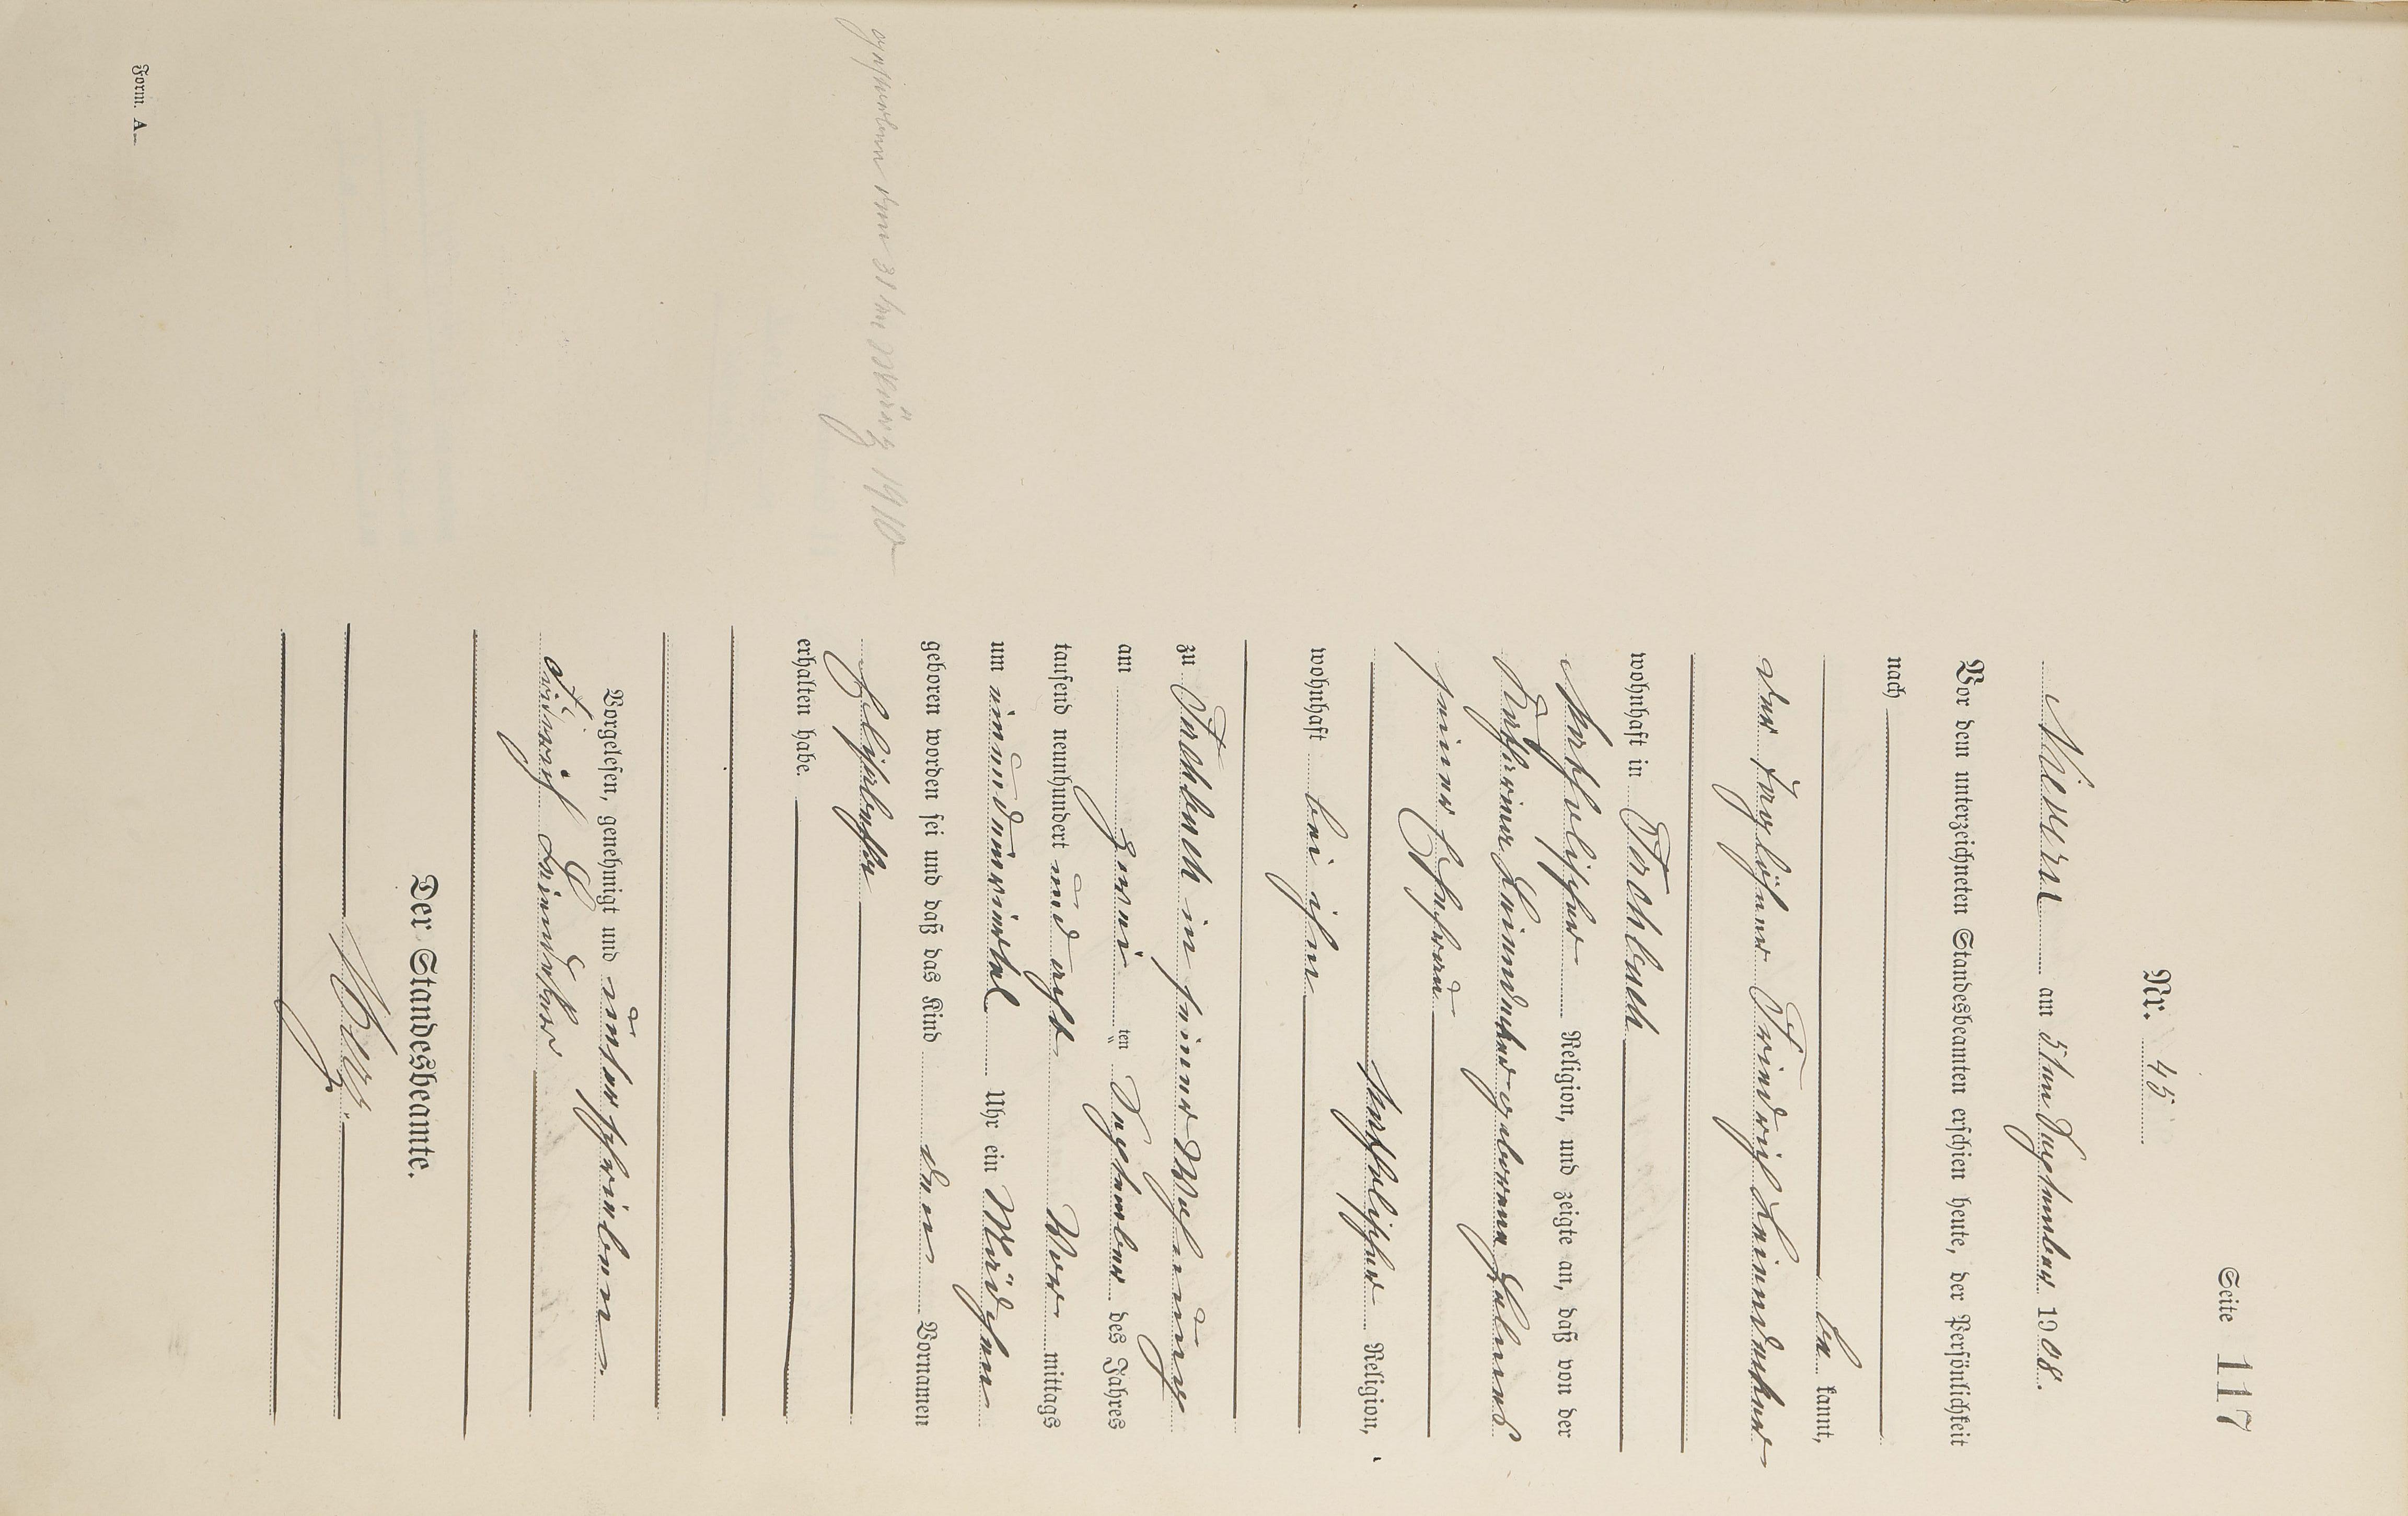 Seite 117
Nr. 45
Nievern am 5ten September 1908.
Vor dem unterzeichneten Standesbeamten erschien heute, der Persönlichkeit
nach
be kannt,
der Taglöhner Friedrich Leiendecker
wohnhaft in Fachbach
katholischer Religion, und zeigte an, daß von der
Leiendecker geborene
seiner Ehefrau
katholischer Religion,
wohnhaft bei ihm
zu Fachbach in seiner Wohnung
am zwei ten September des Jahres
tausend neunhundert und acht Vor mittags
um einundeinviertel Uhr ein Mädchen
geboren worden sei und daß das Kind den Vornamen
Elisabetha
erhalten habe.
gestorben den 31ten März 1910
Vorgelesen, genehmigt und unterschrieben
Friedrich Leiendecker
Der Standesbeamte.
Form. A.